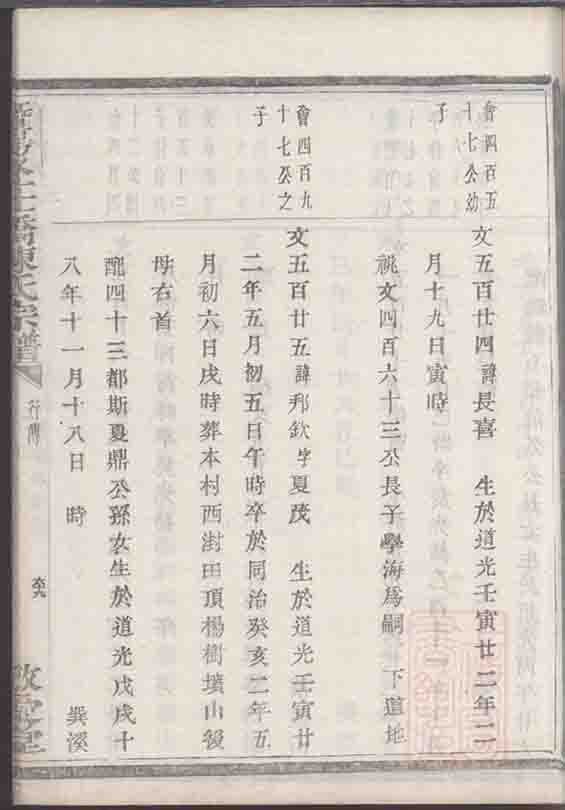 會四百五
十七公幼
子
文五百廿四諱長喜 生於道光壬寅廿二年二
月十九日寅時
祧文四百六十三公長子學海爲嗣 下道地
會四百九
十七公之
子
文五百廿五諱邦欽字夏茂 生於道光壬寅廿
二年五月初五日午時卒於同治癸亥二年五
月初六日戌時葬本村西湗田頂楊樹墳山後
母右首
配四十三都斯夏鼎公孫女生於道光戊戌十
八年十一月十八日 時 巽溪
陳氏宗譜
行傳